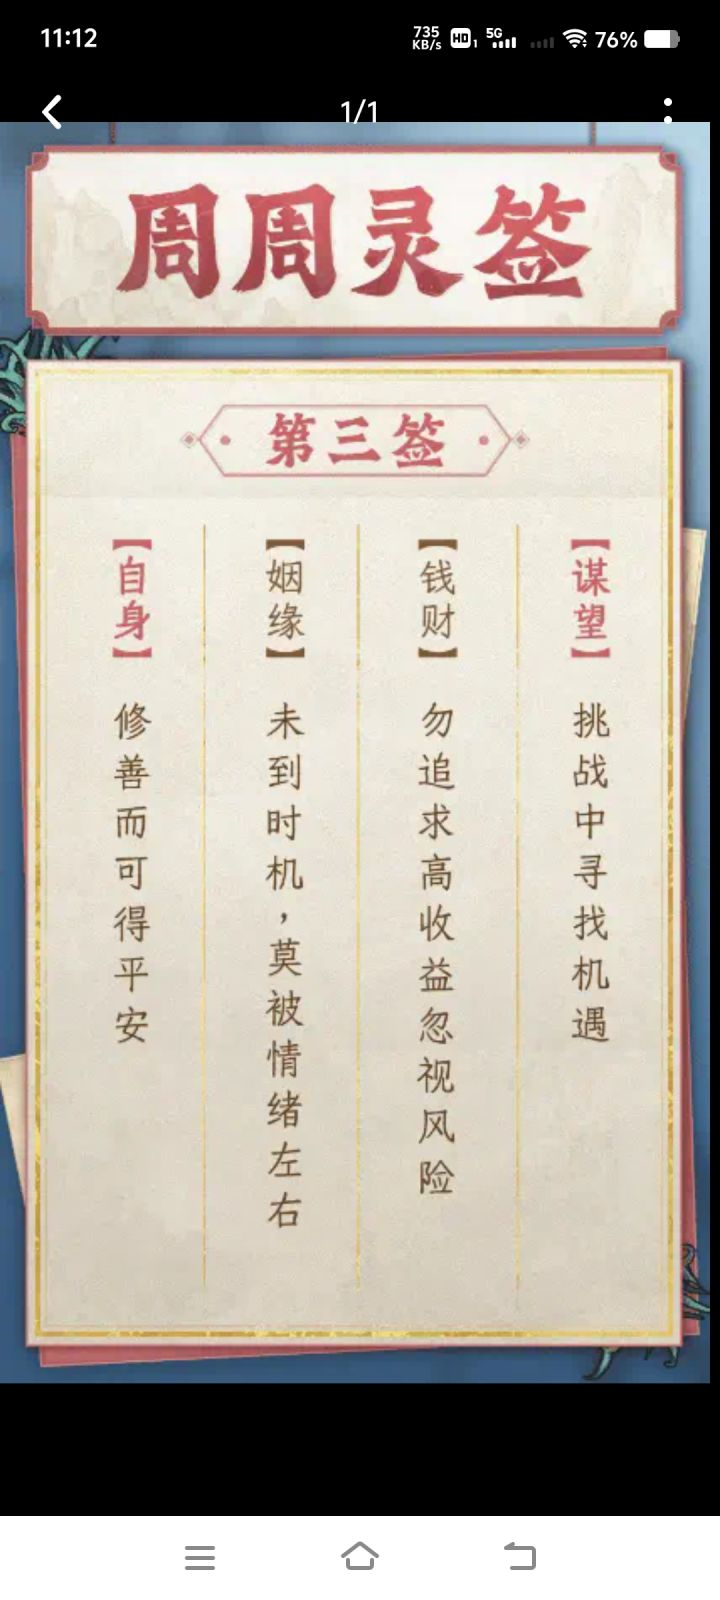 11:12
735 KB/s HD 1 5G 76%
1/1
周周灵签
第三签
【谋望】
挑战中寻找机遇
【钱财】
勿追求高收益忽视风险
【姻缘】
未到时机，莫被情绪左右
【自身】
修善而可得平安